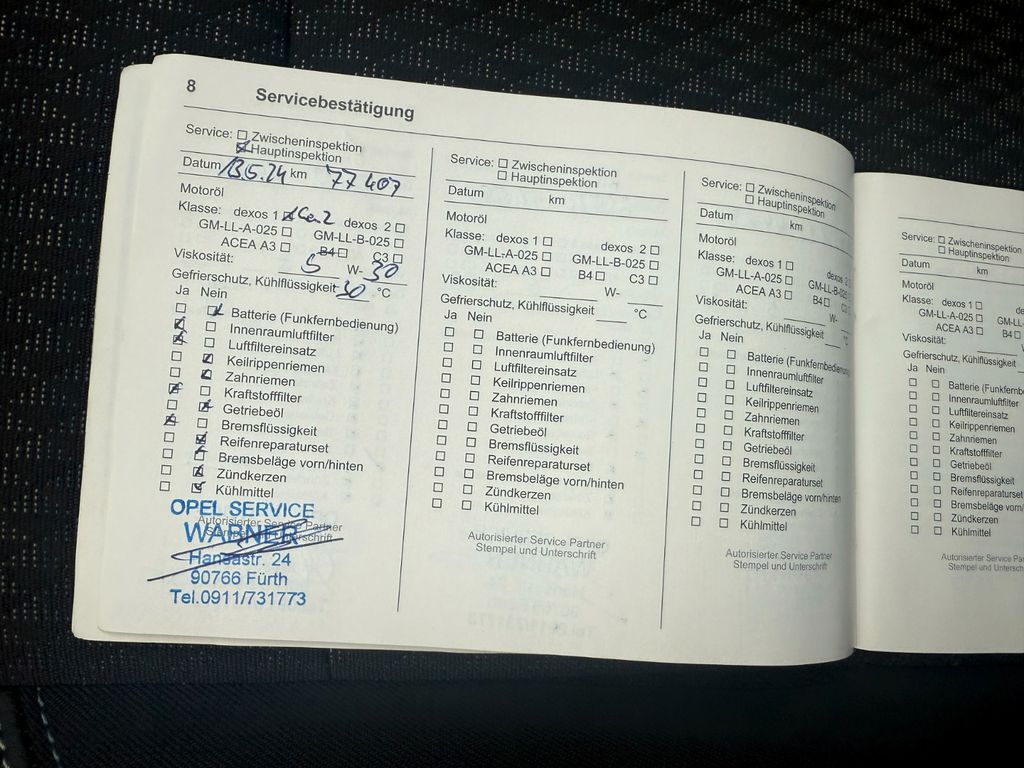 8 Servicebestätigung
Service: Zwischeninspektion
Hauptinspektion
Datum 13.5.24 km 77407
Motoröl
Klasse: dexos 1 Gen2 dexos 2
GM-LL-A-025 GM-LL-B-025
ACEA A3 B4 C3
Viskosität: 5 W- 30
Gefrierschutz, Kühlflüssigkeit 30 °C
Ja Nein
Batterie (Funkfernbedienung)
Innenraumluftfilter
Luftfiltereinsatz
Keilrippenriemen
Zahnriemen
Kraftstofffilter
Getriebeöl
Bremsflüssigkeit
Reifenreparaturset
Bremsbeläge vorn/hinten
Zündkerzen
Kühlmittel
Autorisierter Service Partner
OPEL SERVICE
WARNER
Hansastr. 24
90766 Fürth
Tel.0911/731773
Service: Zwischeninspektion
Hauptinspektion
Datum km
Motoröl
Klasse: dexos 1 dexos 2
GM-LL-A-025 GM-LL-B-025
ACEA A3 B4 C3
Viskosität: W-
Gefrierschutz, Kühlflüssigkeit °C
Ja Nein
Batterie (Funkfernbedienung)
Innenraumluftfilter
Luftfiltereinsatz
Keilrippenriemen
Zahnriemen
Kraftstofffilter
Getriebeöl
Bremsflüssigkeit
Reifenreparaturset
Bremsbeläge vorn/hinten
Zündkerzen
Kühlmittel
Autorisierter Service Partner
Stempel und Unterschrift
Service: Zwischeninspektion
Hauptinspektion
Datum km
Motoröl
Klasse: dexos 1 dexos 2
GM-LL-A-025 GM-LL-B-025
ACEA A3 B4
Viskosität: W-
Gefrierschutz, Kühlflüssigkeit °C
Ja Nein
Batterie (Funkfernbedienung
Innenraumluftfilter
Luftfiltereinsatz
Keilrippenriemen
Zahnriemen
Kraftstofffilter
Getriebeöl
Bremsflüssigkeit
Reifenreparaturset
Bremsbeläge vorn/hinten
Zündkerzen
Kühlmittel
Autorisierter Service Partner
Stempel und Unterschrift
Service: Zwischeninspektion
Hauptinspektion
Datum km
Motoröl
Klasse: dexos 1
GM-LL-A-025
ACEA A3 B4
Viskosität:
Gefrierschutz, Kühlflüssigkeit
Ja Nein
Batterie (Funkfernb
Innenraumluftfilter
Luftfiltereinsatz
Keilrippenriemen
Zahnriemen
Kraftstofffilter
Getriebeöl
Bremsflüssigkeit
Reifenreparaturset
Bremsbeläge vorn
Zündkerzen
Kühlmittel
Autorisierter Service Pa
Stempel und Unterschr